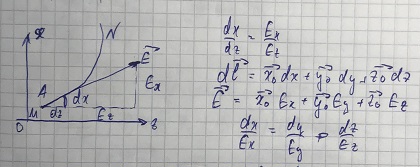 x
N
E⃗
A
dx
Eₓ
M
dz
E_z
0
z
dx/dz = Eₓ/E_z
dl⃗ = x⃗₀ dx + y⃗₀ dy + z⃗₀ dz
E⃗ = x⃗₀ Eₓ + y⃗₀ E_y + z⃗₀ E_z
dx/Eₓ = dy/E_y = dz/E_z